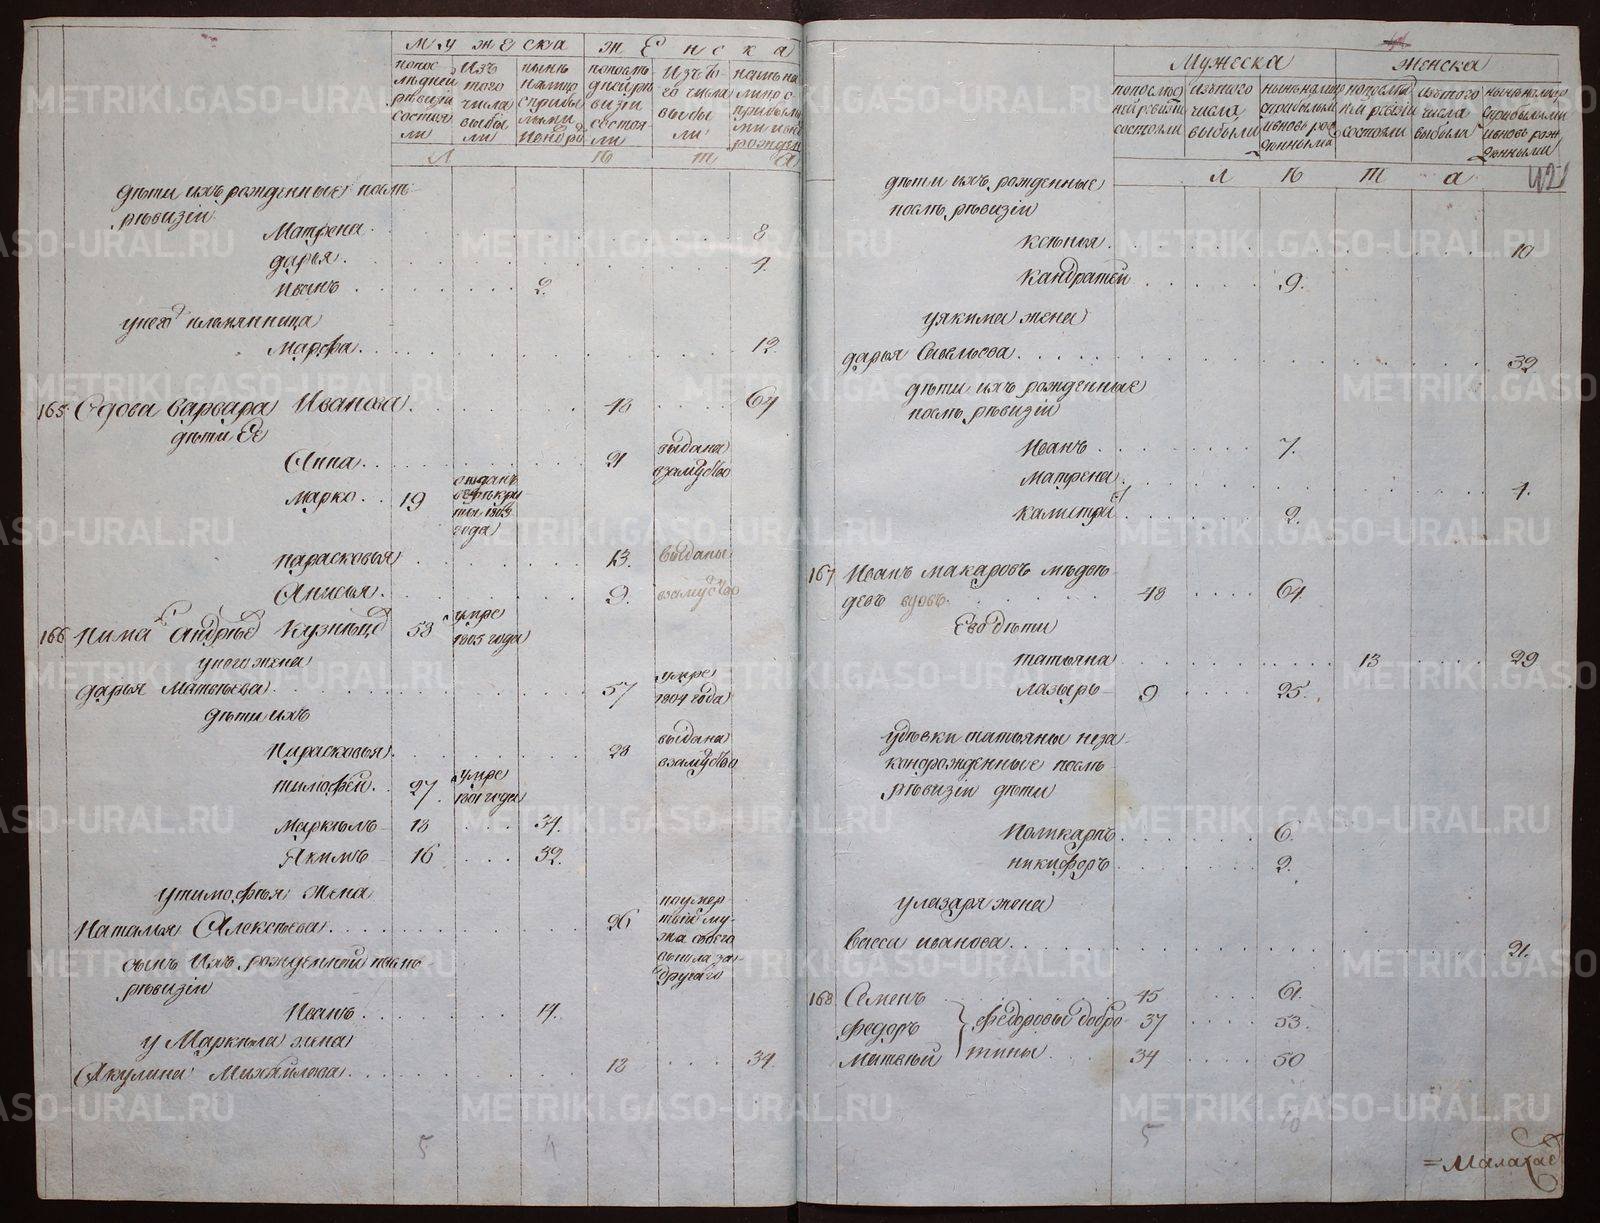 мужеска женска
после дней ревизи состояли
изъ того числа выбыли
ныне налицо
изъ того числа выбыли
л ѣ т а
дѣти ихъ рожденные послѣ
рѣвизiи
Матрена 8
дарья 4
Иванъ 2
у него племянница
Марфа 12
165 Вдова Варвара Иванова 48 64
дѣти Ее
Анна 21 выдана взамуство
Марко 19 отданъ в рекруты года
парасковья 13 выданы
Анисья 9 взамуство
166 Пима Андрѣев Кузнецов 58 умре 1805 года
у него жена
дарья Матвѣева 57 умре 1804 года
дѣти ихъ
Парасковья 28 выдана взамуство
тимофей 27 умре 1801 года
Маркълъ 18 34
Якимъ 16 32
у тимофѣя жена
Наталья Алексѣева 26 по умертвiи мужа своего вышла за другаго
сынъ Ихъ рожденной послѣ
рѣвизiи
Иванъ 14
у Маркѣла жена
Акулина Михайлова 18 34
5 4
Мужеска женска
по последней ревизiи состояли
изъ того числа выбыли
ныне налицо с прибылыми и вновь рожденными
по последней ревизiи состояли
изъ того числа выбыли
ныне налицо с прибылыми и вновь рожденными
л ѣ т а 42
дѣти ихъ рожденные
послѣ рѣвизiи
ксенья 10
кандратей 9
у якима жена
дарья Савельева 32
дѣти ихъ рожденные
послѣ рѣвизiи
Иванъ 7
матрена 4
калистратъ 2
167 Иванъ макаровъ мѣдвѣ-
девъ вдовъ 48 64
Его дѣти
татьяна 13 29
лазырь 9 25
у дѣвки татьяны неза-
конорожденные послѣ
рѣвизiи дѣти
Поликарпъ 6
никифоръ 2
у лазаря жена
Васса иванова 21
168 Семенъ 45 61
федоръ федоровы добро- 37 53
матвѣй тины 34 50
5 10
Малахов
METRIKI.GASO-URAL.RU